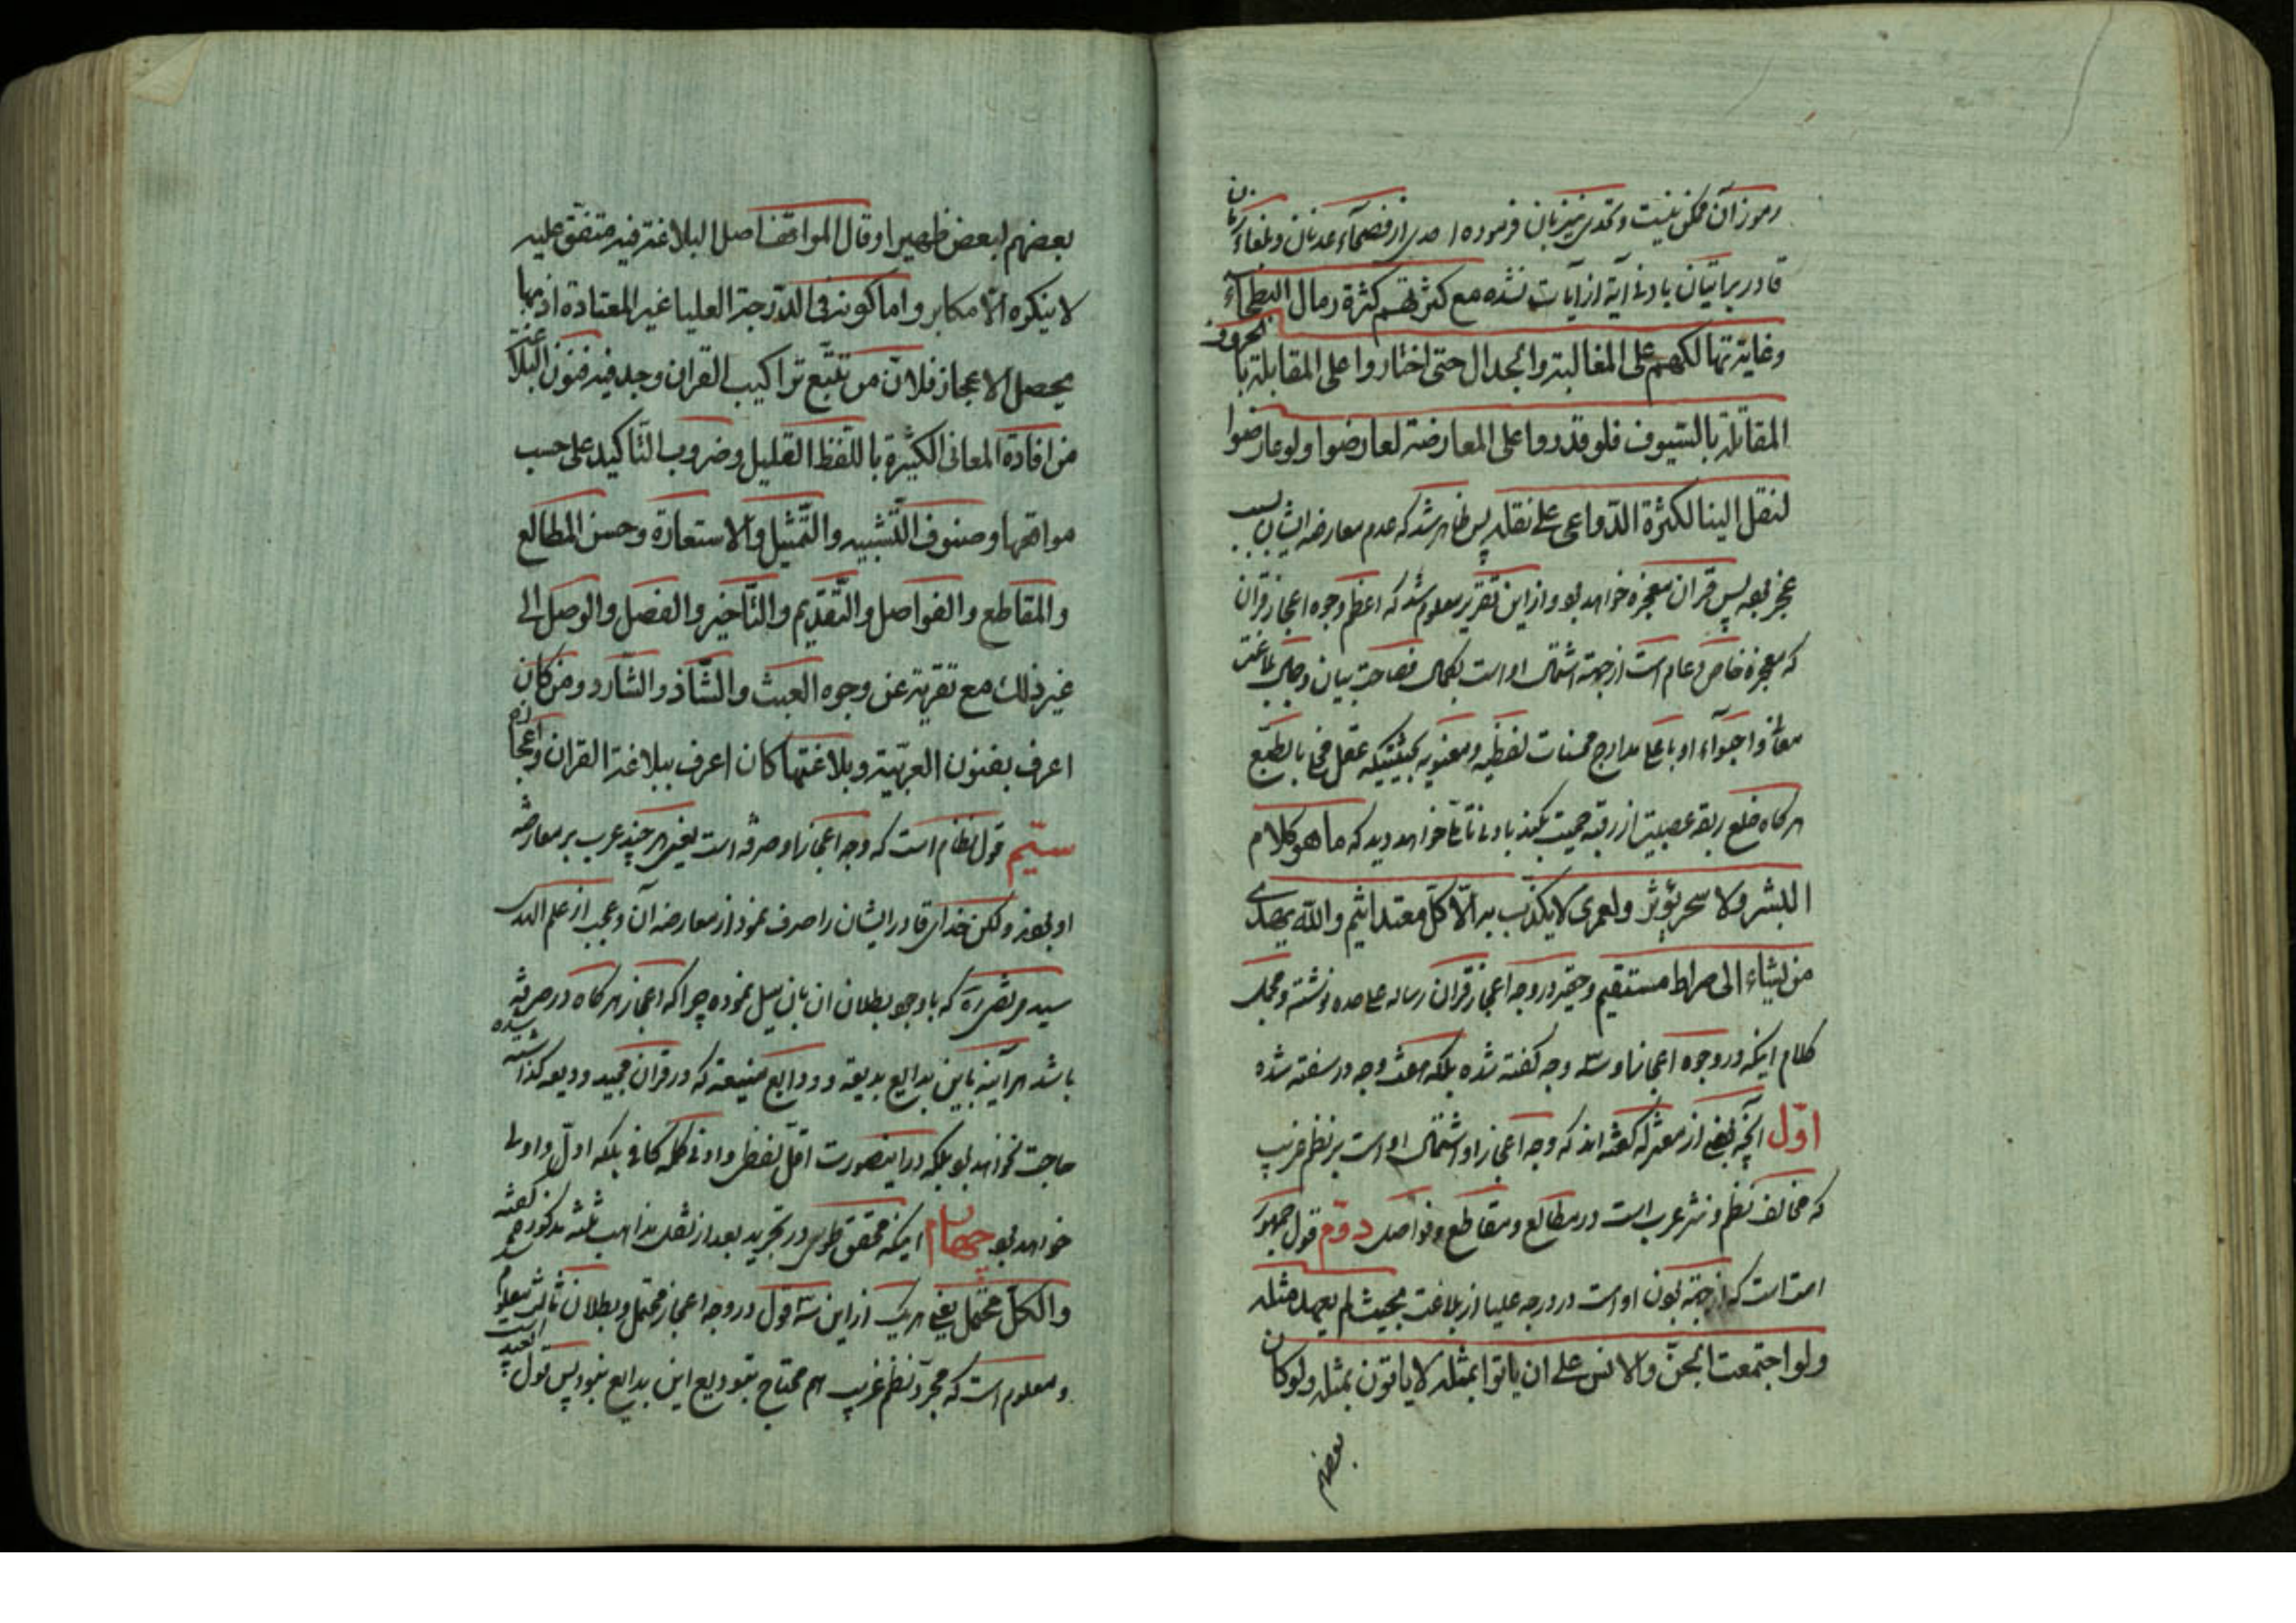 رموز آن ممکن نیست و تحدی نیز بآن فرموده احدی از فصحآء عدنان و بلغاء
قادر بر اتیان بادنی آیه از آیات نشده مع کثرتهم کثرة رمال البطحآء
وغایة تهالکهم علی المغالبة والجدال حتی اختاروا علی المقابلة بالحروف
المقاتلة بالسّیوف فلو قدروا علی المعارضة لعارضوا ولو عارضوا
لنقل الینا لکثرة الدّواعی علی نقله پس ظاهر شد که عدم معارضه ایشان بسبب
عجز بوده پس قران معجزه خواهد بود و از این تقریر معلوم شد که اعظم وجوه اعجاز قران
که معجزه خاص و عام است از جهته اشتمال او است بکمال فصاحت بیان و
معانی و احتوآء او باعلی مدارج محسنات لفظیه و معنویه بحیثیتیکه عقل بالطبع
هرکاه خلع ربقه عصبیت از رقبه حمیت بکند بادنی تأملی خواهد دید که ما هو کلام
البشر ولا سحر یؤثر ولعمری لا یکذّب به الّا کلّ معتد اثیم والله یهدی
من یشاء الی صراط مستقیم و حقیر در وجه اعجاز قران رساله علی حده نوشته و مجمل
کلام اینکه در وجوه اعجاز او سه وجه کفته شده بلکه هفت وجه در سفته شده
اوّل آنچه بعضی از معتزله کفته اند که وجه اعجاز او اشتمال او است بر نظم غریب
که مخالف نظم و نثر عرب است در مطالع و مقاطع و فواصل دوّم قول جمهور
است که از جهته بودن او است در درجه علیا از بلاغت بحیث لم یعهد مثله
ولو اجتمعت الجنّ والانس علی ان یاتوا بمثله لا یاتون بمثله ولو کان
بعضهم
بعضهم لبعض ظهیرا وقال المواقف اصل البلاغة فیه متفق علیه
لا ینکره الّا مکابر واما کونه فی الدّرجة العلیا غیر المعتادة اذ بها
یحصل الاعجاز فلانّ من تتبّع تراکیب القران وجد فیه فنون البلاغة
من افادة المعانی الکثیرة باللّفظ القلیل وضروب التّاکید علی حسب
مواقعها وصنوف التّشبیه والتّمثیل والاستعارة وحسن المطالع
والمقاطع والفواصل والتّقدیم والتّاخیر والفصل والوصل الی
غیر ذلک مع تعریته عن وجوه العبث والشّاذ والشّارد ومن کان
اعرف بفنون العربیّة وبلاغتها کان اعرف ببلاغة القران واعجازه
سیّم قول نظام است که وجه اعجاز او صرفه است یعنی هر چند عرب بر معارضه
او بودند ولکن خدای قادر ایشان را صرف نمود از معارضه آن و عجب از علم الهدی
سید مرتضی ره که با وجود بطلان ان بان میل نموده چرا که اعجاز هرکاه در صرفه
باشد هر آینه باین بدایع بدیعه و ودایع منیعه که در قران مجید ودیعه کذاشته شده
حاجت نخواهد بود بلکه در اینصورت اقلّ لفظ و ادنی کلمه کافی بلکه اولّ و اولی
خواهد بود چهارم اینکه محقق طوسی در تجرید بعد از نقل مذاهب ثلثه مذکوره کفته
والکلّ محتمل یعنی هر یک از این سه قول در وجه اعجاز محتمل و بطلان ثالث معلوم است
و معلوم است که مجرّد نظم غریب هم محتاج بتودیع این بدایع نبود پس قول